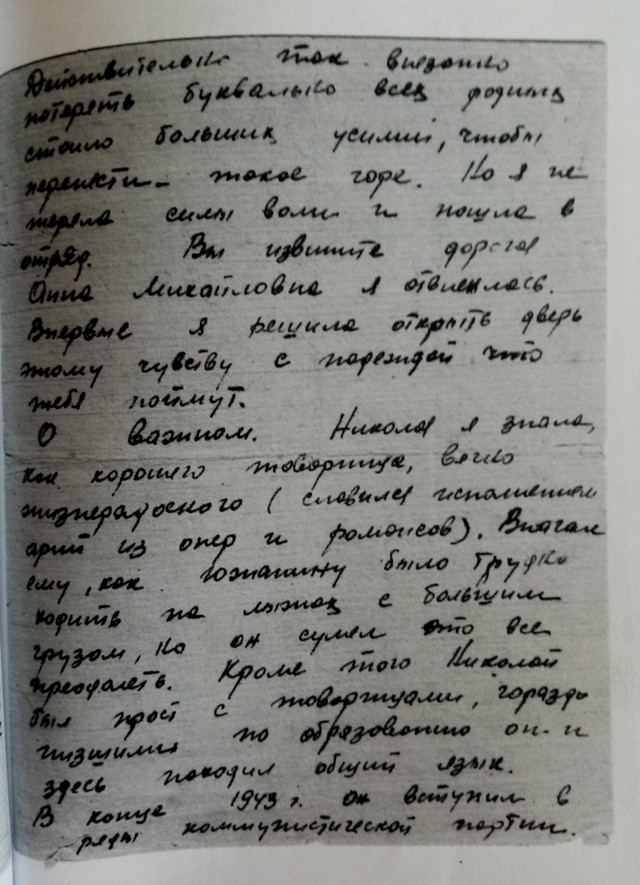 Действительно так внезапно
потерять буквально всех родных
стоило больших усилий, чтобы
перенести такое горе. Но я не
теряла силы воли и пошла в
отряд. Вы извините дорогая
Анна Михайловна я отвлеклась.
Впервые я решила открыть дверь
этому чувству с надеждой что
тебя поймут.
О важном. Николая я знала,
как хорошего товарища, вечно
жизнерадосного (славился исполнением
арий из опер и романсов). Вначале
ему, как южанину было трудно
ходить на лыжах с большим
грузом, но он сумел это все
преодолеть. Кроме того Николай
был прост с товарищами, гораздо
низшими по образованию он и
здесь находил общий язык.
В конце 1943 г. он вступил в
ряды коммунистической партии.